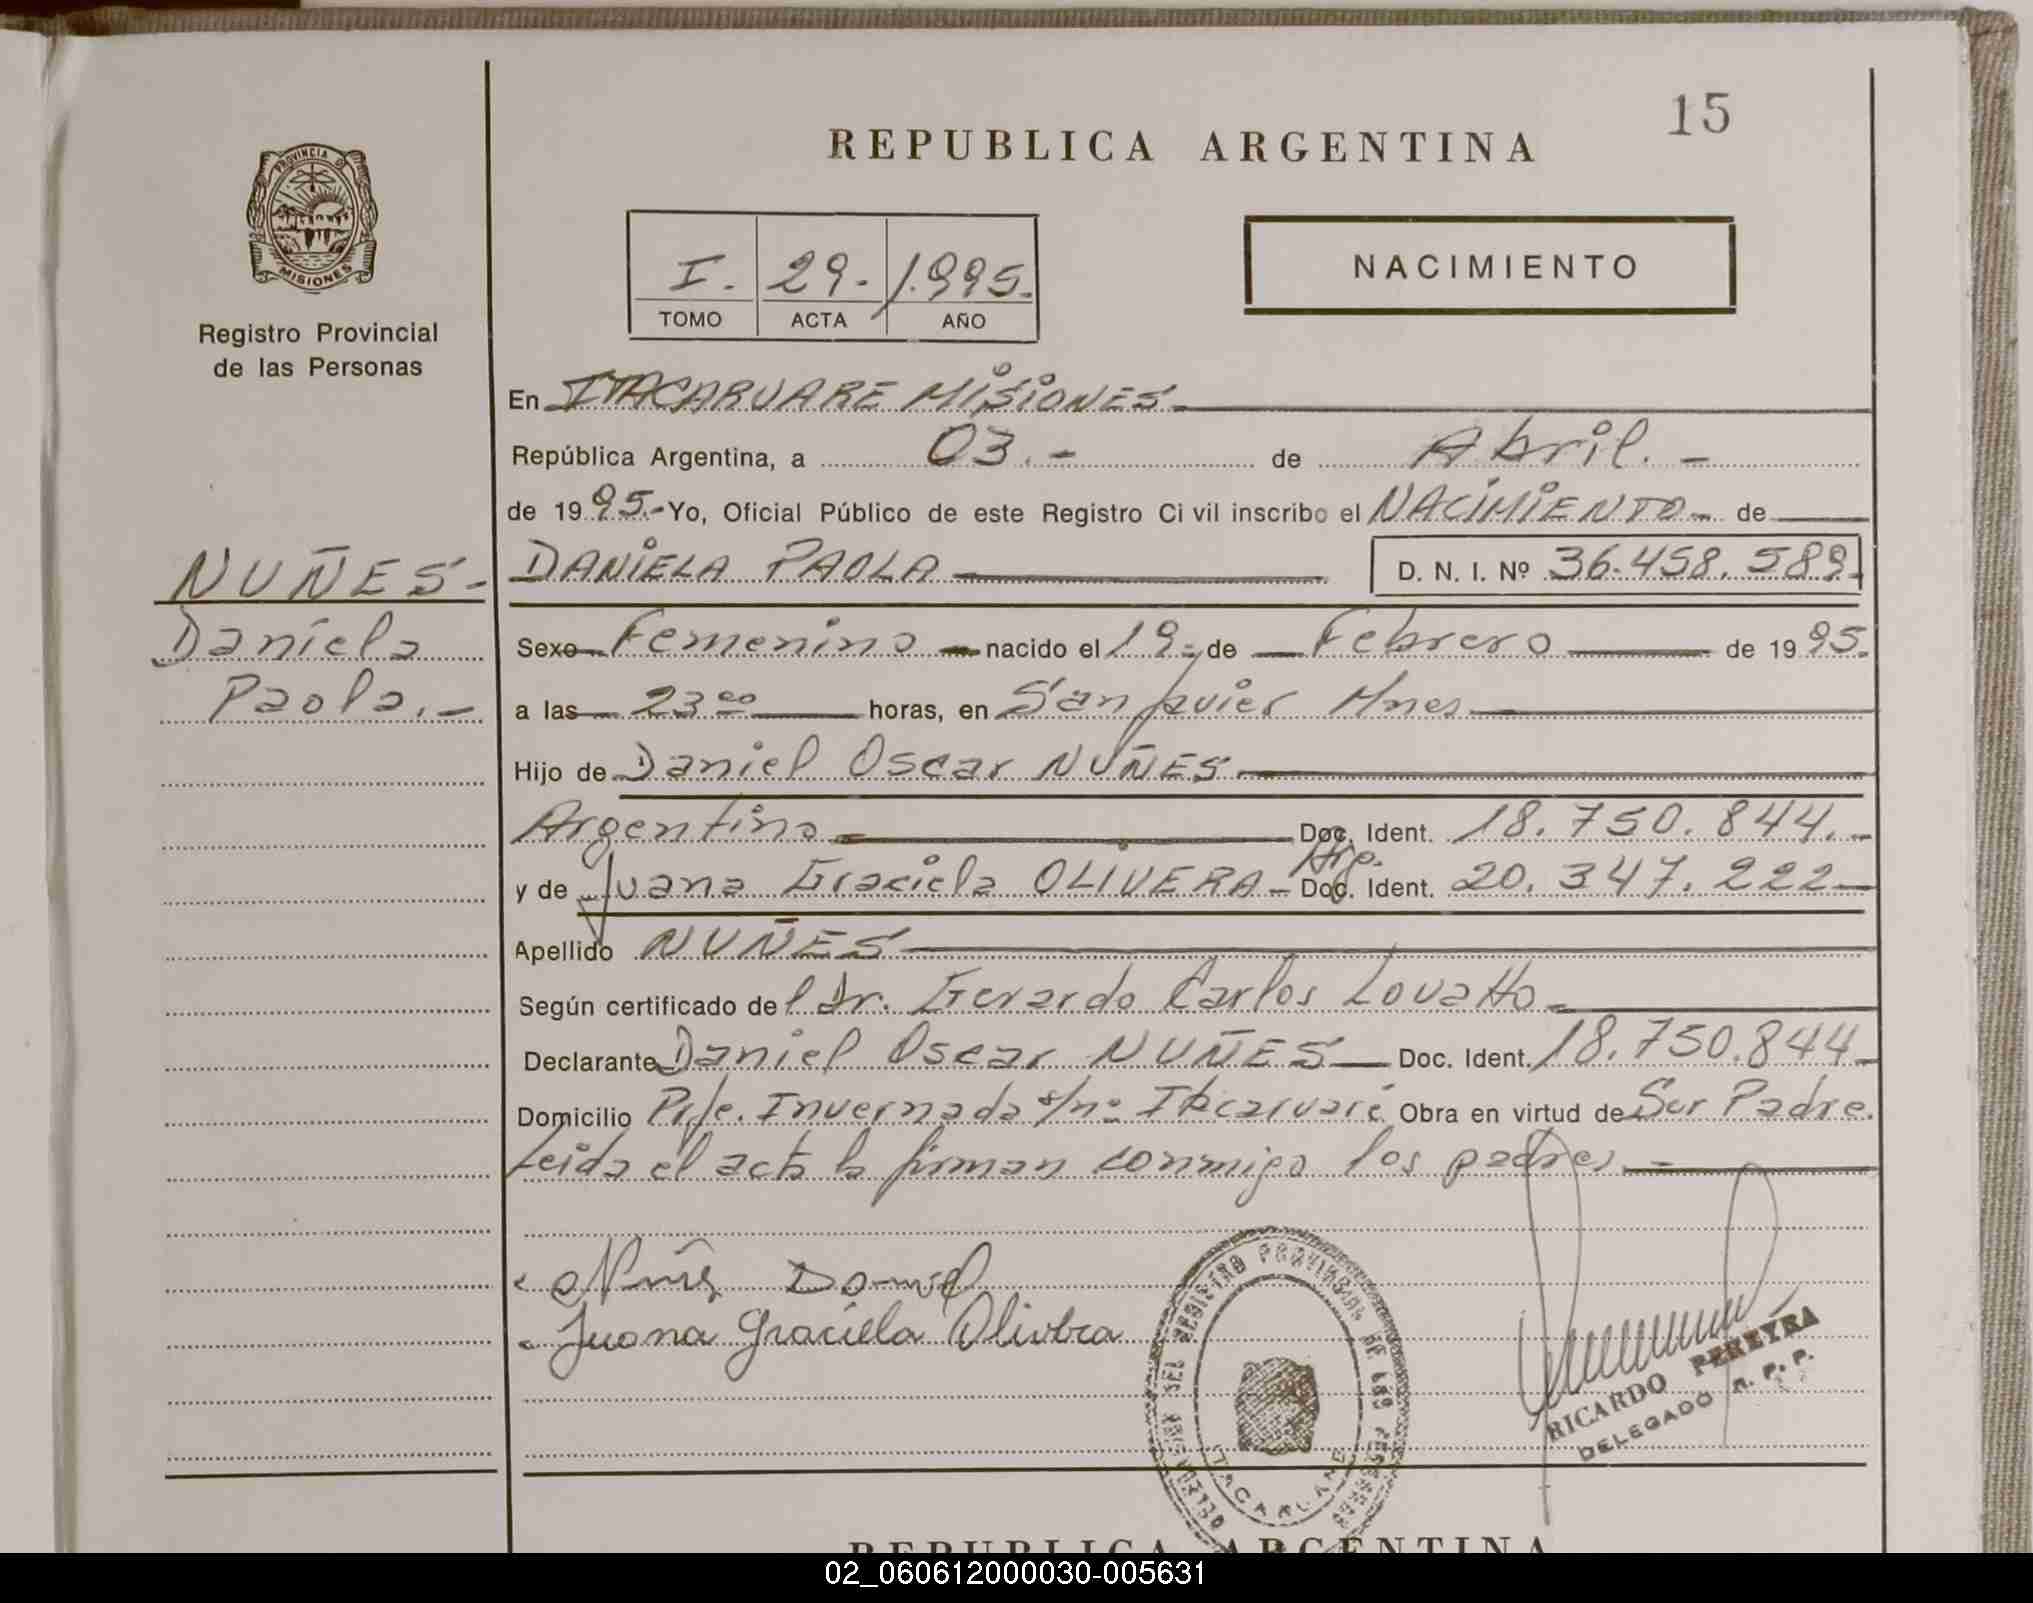 15
REPUBLICA ARGENTINA
PROVINCIA DE
MISIONES
Registro Provincial
de las Personas
I. 29. 1.995.
TOMO ACTA AÑO
NACIMIENTO
En ITACARUARE MISIONES
República Argentina, a 03.- de Abril.-
de 1995.- Yo, Oficial Público de este Registro Civil inscribo el NACIMIENTO- de
NUÑES-
DANIELA PAOLA D. N. I. Nº 36.458.589.
Daniela
Paola.-
Sexo Femenino nacido el 19- de Febrero de 1995.
a las 23 00 horas, en San Javier Mnes.
Hijo de Daniel Oscar NUÑES
Argentino Doc. Ident. 18.750.844.-
Arg.
y de Juana Graciela OLIVERA- Doc. Ident. 20.347.222
Apellido NUÑES
Según certificado del Dr. Gerardo Carlos Lovatto
Declarante Daniel Oscar NUÑES Doc. Ident. 18.750.844
Domicilio Pje. Invernada s/nº Itacaruaré Obra en virtud de Ser Padre.
Leida el acta la firman conmigo los padres.-
Daniel
Juana Graciela Olivera
REGISTRO PROVINCIAL DE LAS PERSONAS
ITACARUARE
RICARDO PEREYRA
DELEGADO R. P. P.
REPUBLICA ARGENTINA
02_060612000030-005631